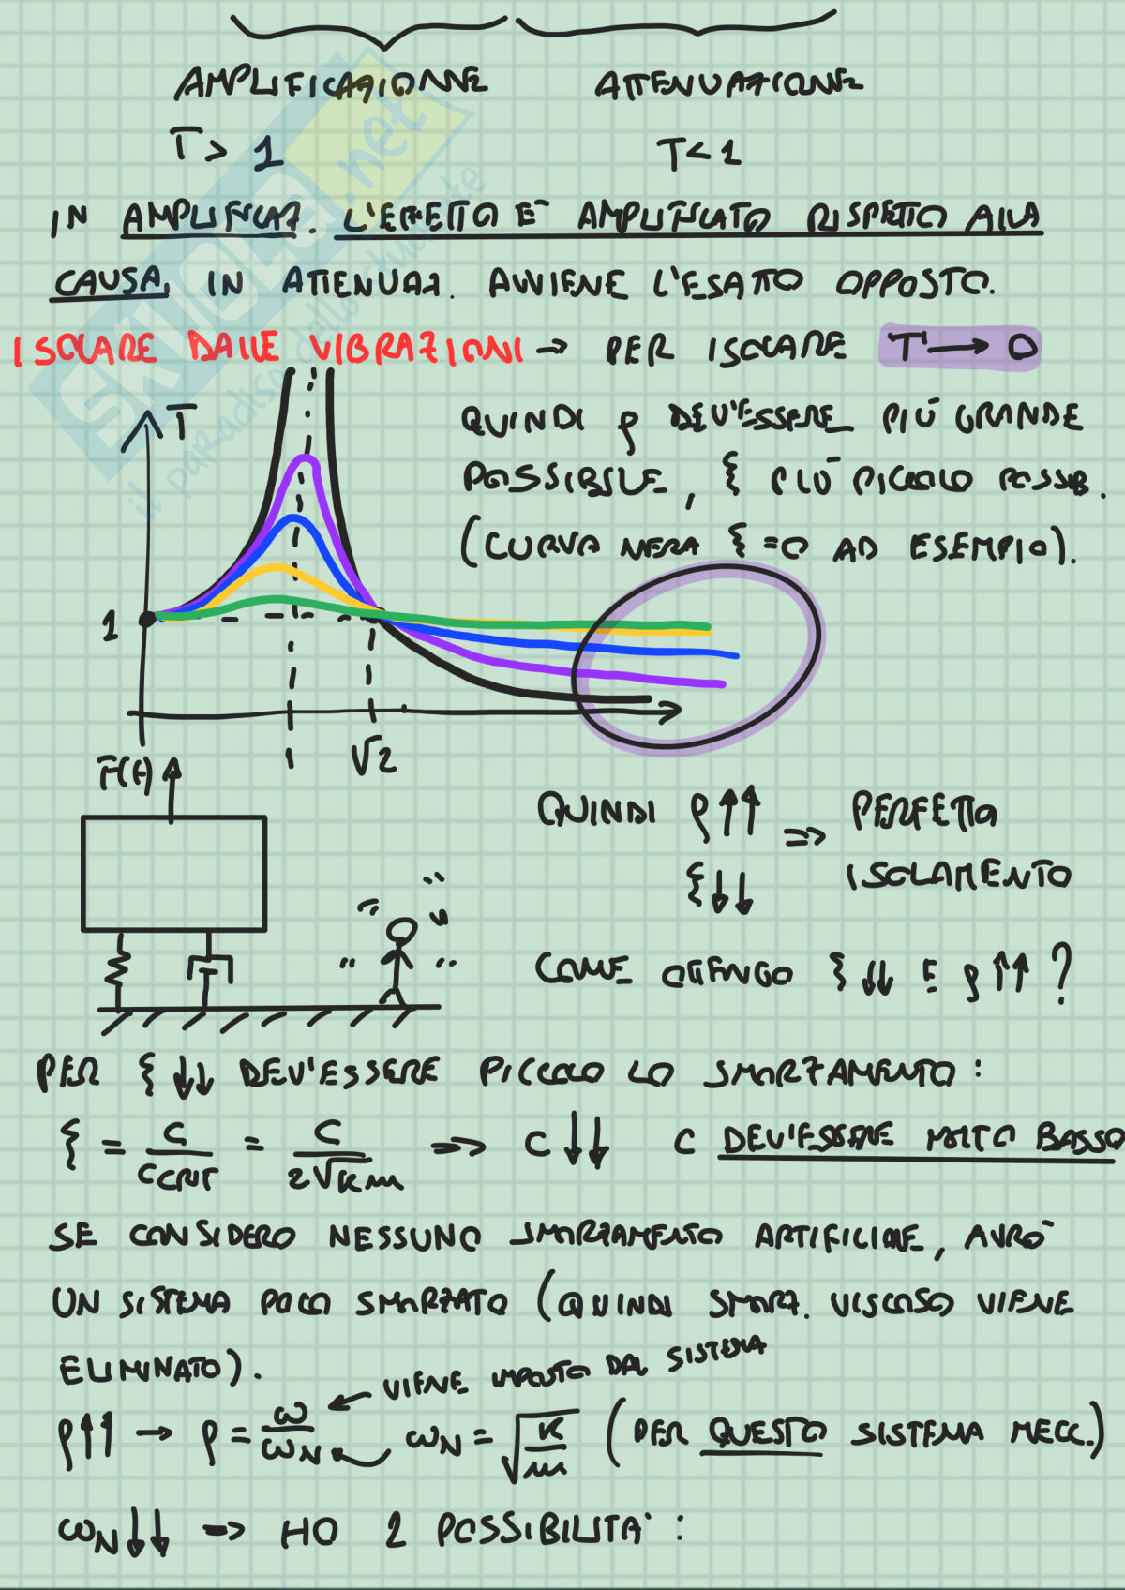 AMPLIFICAZIONE ATTENUAZIONE
T > 1 T < 1
IN AMPLIFICAZ. L'EFFETTO E' AMPLIFICATO RISPETTO ALLA
CAUSA, IN ATTENUAZ. AVVIENE L'ESATTO OPPOSTO.
ISOLARE DALLE VIBRAZIONI → PER ISOLARE T → 0
T
QUINDI ρ DEV'ESSERE PIÙ GRANDE
POSSIBILE, ξ PIÙ PICCOLO POSSIB.
(CURVA NERA ξ = 0 AD ESEMPIO).
1
√2
F(t)
QUINDI ρ↑↑ ⇒ PERFETTO
ξ↓↓ ISOLAMENTO
COME OTTENGO ξ↓↓ E ρ↑↑ ?
PER ξ↓↓ DEV'ESSERE PICCOLO LO SMORZAMENTO:
ξ = C/CCRIT = C/2√Km ⇒ C↓↓ C DEV'ESSERE MOLTO BASSO
SE CONSIDERO NESSUNO SMORZAMENTO ARTIFICIALE, AVRO'
UN SISTEMA POCO SMORZATO (QUINDI SMORZ. VISCOSO VIENE
ELIMINATO).
VIENE IMPOSTO DAL SISTEMA
ρ↑↑ → ρ = ω/ωN ωN = √K/m (PER QUESTO SISTEMA MECC.)
ωN↓↓ ⇒ HO 2 POSSIBILITA':
SKUOLA.net
il paradiso dello studente